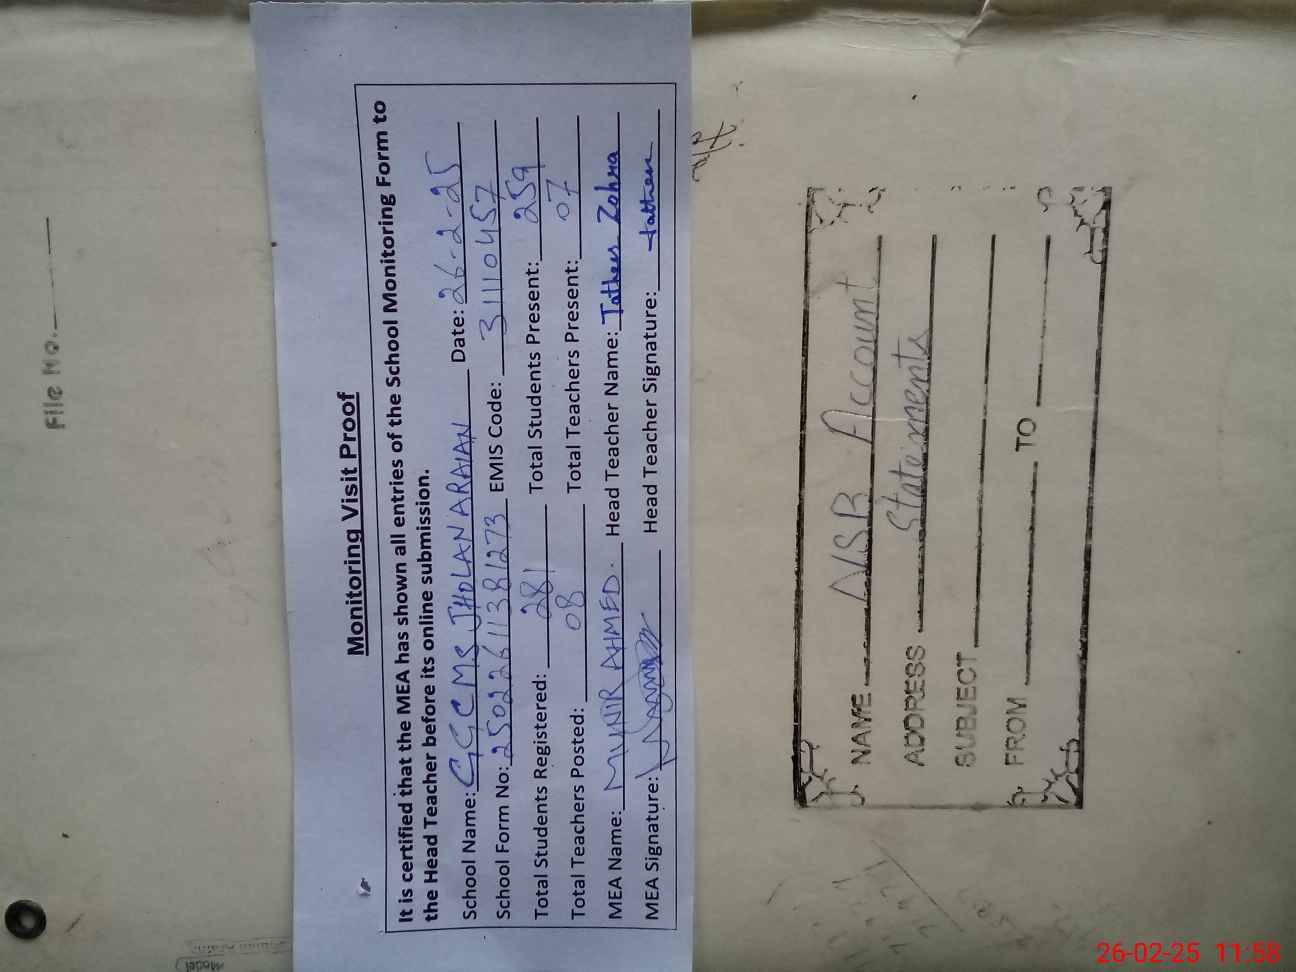 File No.
Monitoring Visit Proof
It is certified that the MEA has shown all entries of the School Monitoring Form to
the Head Teacher before its online submission.
School Name: GGCMS JHOLANARAIAN Date: 26-2-25
School Form No: 25022611381273 EMIS Code: 31110457
Total Students Registered: 281 Total Students Present: 259
Total Teachers Posted: 08 Total Teachers Present: 07
MEA Name: MUNIR AHMED. Head Teacher Name: Tatheer Zohra
MEA Signature: Head Teacher Signature: tatheer
NAME NSB Account
ADDRESS Statements
SUBJECT
FROM TO
Model
26-02-25 11:58